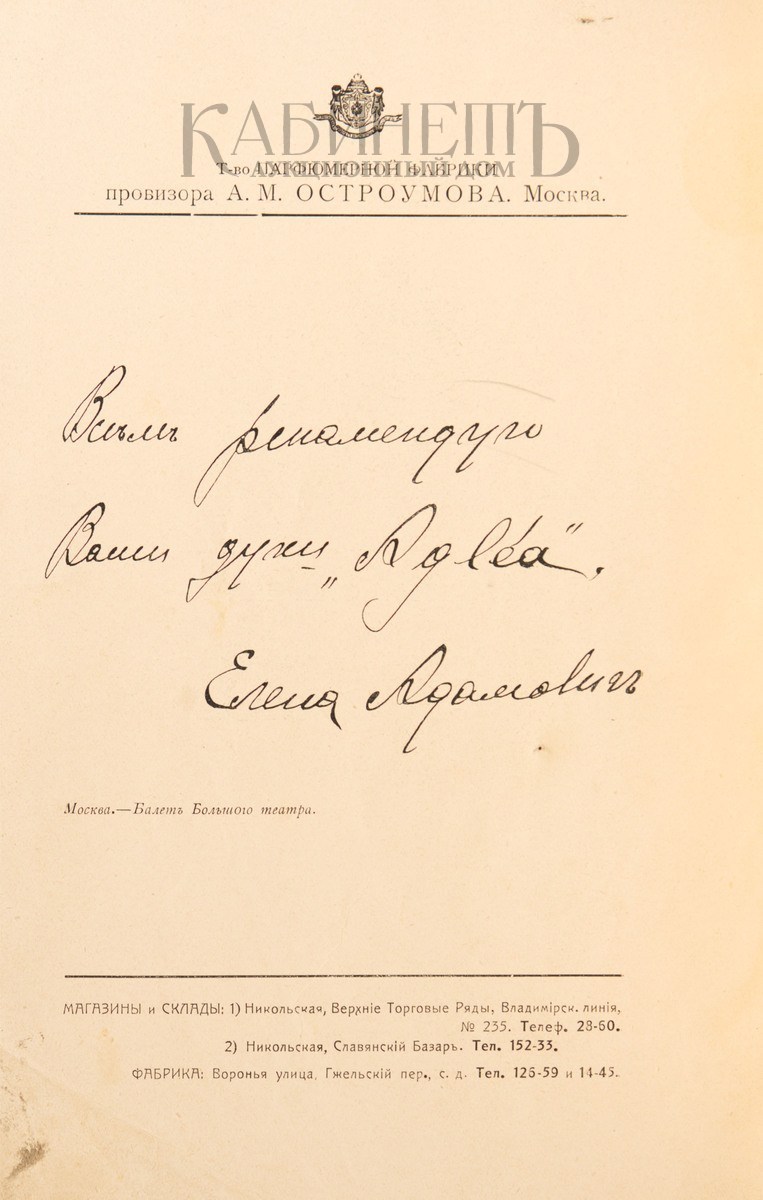 КАБИНЕТЪ
АУКЦИОННЫЙ ДОМ
Т-во ПАРФЮМЕРНОЙ ФАБРИКИ
провизора А. М. ОСТРОУМОВА. Москва.
Всѣмъ рекамендую
Ваши духи „Agléa".
Елена Адамовичъ
Москва.—Балетъ Большого театра.
МАГАЗИНЫ и СКЛАДЫ: 1) Никольская, Верхніе Торговые Ряды, Владимірск. линія,
№ 235. Телеф. 28-60.
2) Никольская, Славянскій Базаръ. Тел. 152-33.
ФАБРИКА: Воронья улица, Гжельскій пер., с. д. Тел. 126-59 и 14-45.